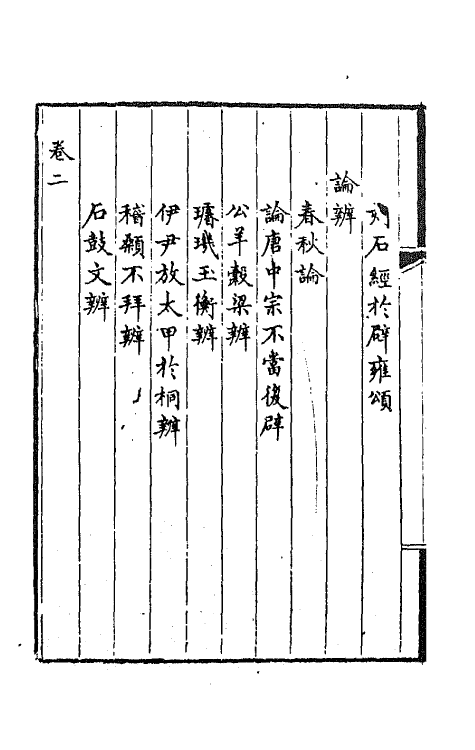 刻石經於辟雍頌
論辨
春秋論
論唐中宗不當後辟
公羊穀梁辨
璿璣玉衡辨
伊尹放太甲於桐辨
稽顙不拜辨
石鼓文辨
卷二